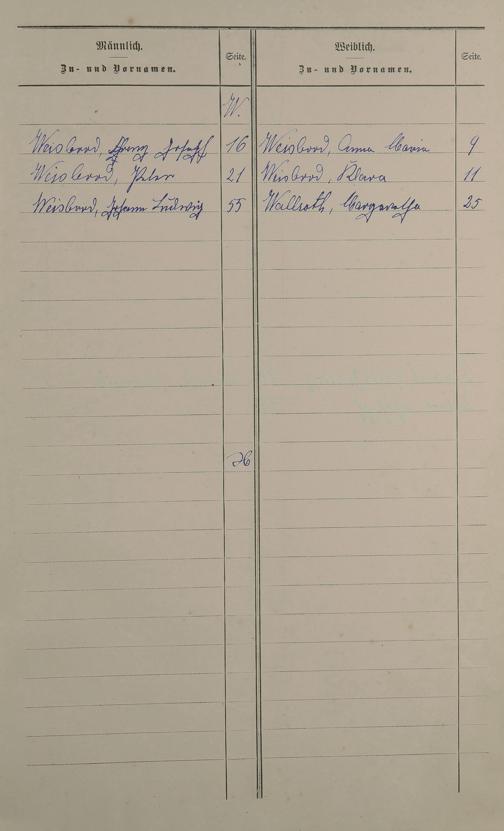 Männlich.
Zu- und Vornamen.
Seite.
Weiblich.
Zu- und Vornamen.
Seite.
W.
Weisbrod, Franz Joseph 16
Weisbrod, Anna Maria 9
Weisbrod, Peter 21
Weisbrod, Klara 11
Weisbrod, Johann Ludwig 55
Wallroth, Margaretha 25